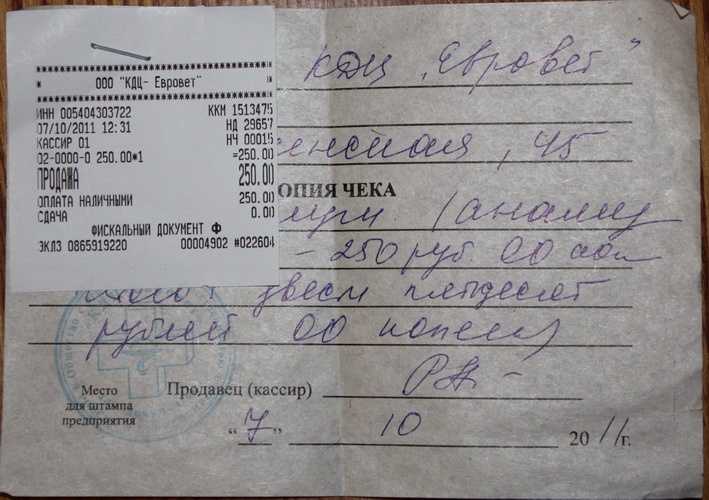 ООО "КДЦ- Евровет"
ИНН 005404303722 ККМ 1513475
07/10/2011 12:31 НД 29657
КАССИР 01 НЧ 00015
02-0000-0 250.00*1 =250.00
ПРОДАЖА 250.00
ОПЛАТА НАЛИЧНЫМИ 250.00
СДАЧА 0.00
ФИСКАЛЬНЫЙ ДОКУМЕНТ Ф
ЭКЛЗ 0865919220 00004902 #022604
КДЦ "Евровет"
, 45
ОПИЯ ЧЕКА
- 250 руб. 00 коп
двести пятьдесят
рублей 00 копеек
Место для штампа предприятия
Продавец (кассир)
"7" 10 2011г.